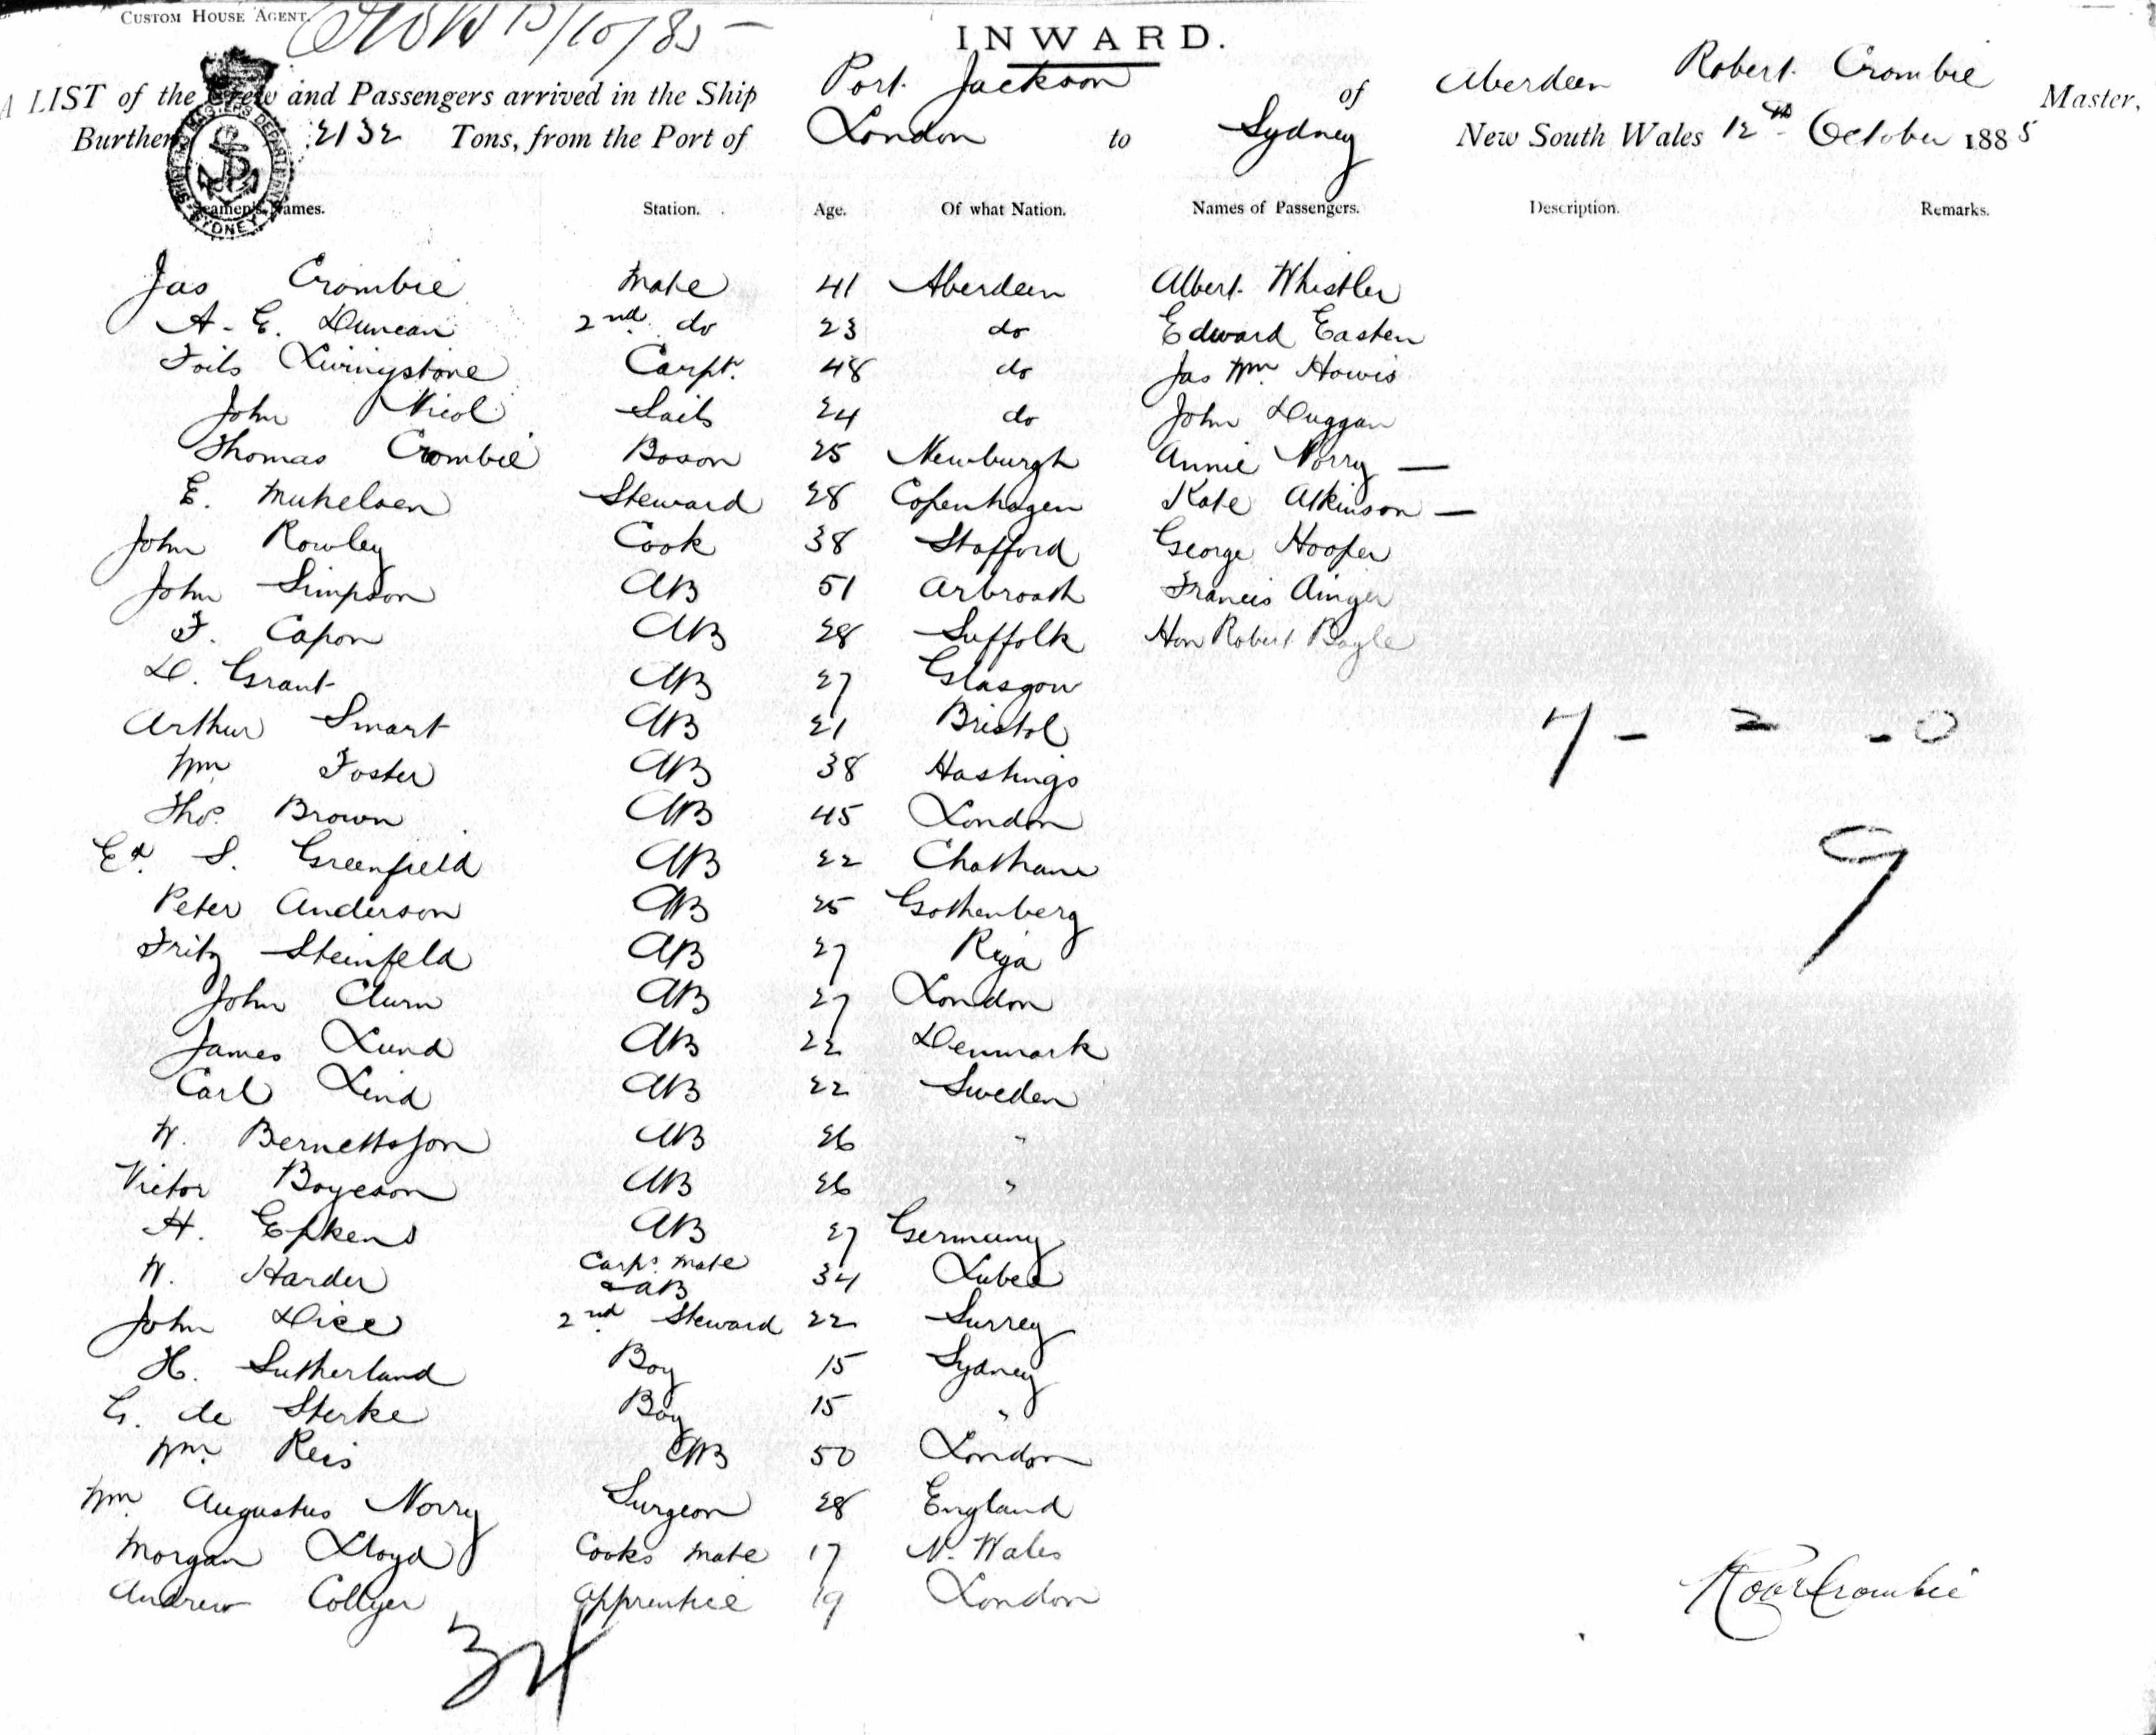 CUSTOM HOUSE AGENT.
13/10/85
INWARD.
A LIST of the Crew and Passengers arrived in the Ship Port Jackson of Aberdeen Robert Crombie Master,
Burthen 2132 Tons, from the Port of London to Sydney New South Wales 12th October 1885
Seamen's Names. Station. Age. Of what Nation. Names of Passengers. Description. Remarks.
Jas Crombie Mate 41 Aberdeen Albert Whistler
A. E. Duncan 2nd do 23 do Edward Easten
Livingstone Carpt. 48 do Jas Wm Howis
John Nicol Sails 24 do John Duggan
Thomas Crombie Boson 25 Newburgh Annie Norry —
E. Mukelsen Steward 28 Copenhagen Kate Atkinson —
John Rowley Cook 38 Stafford George Hooper
John Simpson AB 51 Arbroath Francis Ainger
F. Capon AB 28 Suffolk Hon Robert Bogle
D. Grant AB 27 Glasgow
Arthur Smart AB 21 Bristol 7 - 2 - 0
Wm Foster AB 38 Hastings
Thos. Brown AB 45 London
Ed. S. Greenfield AB 22 Chatham 9
Peter Anderson AB 25 Gothenberg
Fritz Steinfeld AB 27 Riga
John Clurn AB 27 London
James Lund AB 22 Denmark
Carl Lind AB 22 Sweden
W. Bernettsson AB 26 "
Victor Boyeson AB 26 "
H. Epkens AB 27 Germany
W. Harder Carps. Mate & AB 34 Lubec
John Dice 2nd Steward 22 Surrey
H. Sutherland Boy 15 Sydney
G. de Sterke Boy 15 "
Wm. Reis AB 50 London
Wm Augustus Norry Surgeon 28 England
Morgan Lloyd Cooks Mate 17 N. Wales
Andrew Collyer Apprentice 19 London
Robt Crombie